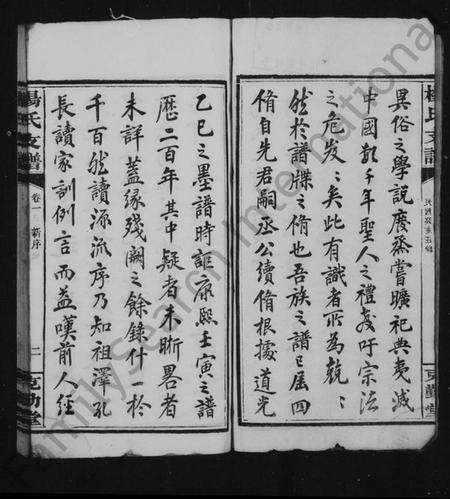 異俗之學說廢蒸嘗曠祀典夷滅
中國數千年聖人之禮教吁宗法
之危发〻矣此有識者所為兢〻
然於譜牒之脩也吾族之譜已屆四
脩自先君嗣丞公續脩根據道光
乙巳之墨譜時距康熙壬寅之譜
歷二百年其中疑者未晣畧者
未詳蓋緣殘闕之餘錄什一於
千百然讀源流序乃知祖澤孔
長讀家訓例言而益嘆前人經
楊氏支譜
卷一 新序
二
克勤堂
楊氏支譜
克勤堂
FamilySearch International